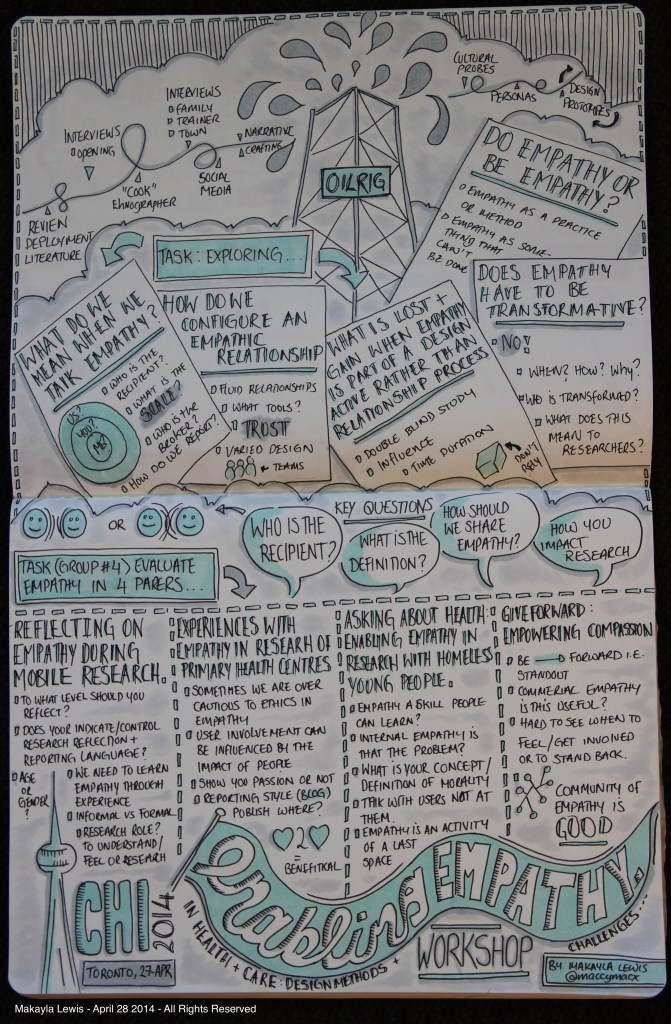 CULTURAL
PROBES
PERSONAS
DESIGN
PROTOTYPES
INTERVIEWS
FAMILY
TRAINER
TOWN
INTERVIEWS
OPENING
NARRATIVE
CRAFTING
SOCIAL
MEDIA
"COOK"
EHNOGRAPHER
REVIEW
DEPLOYMENT
LITERATURE
OILRIG
DO EMPATHY OR
BE EMPATHY?
EMPATHY AS A PRACTICE
OR METHOD
EMPATHY AS SOME-
THING THAT
CAN'T
BE DONE
TASK: EXPLORING...
WHAT DO WE
MEAN WHEN WE
TALK EMPATHY?
WHO IS THE
RECIPIENT?
WHAT IS THE
SCALE?
WHO IS THE
BROKER?
HOW DO WE REPORT?
US?
YOU?
ME?
HOW DO WE
CONFIGURE AN
EMPATHIC
RELATIONSHIP
FLUID RELATIONSHIPS
WHAT TOOLS?
TRUST
VARIED DESIGN
TEAMS
WHAT IS LOST +
GAIN WHEN EMPATHY
IS PART OF A DESIGN
ACTIVE RATHER THAN
RELATIONSHIP PROCESS
DOUBLE BLIND STUDY
INFLUENCE
TIME DURATION
DON'T
RELY
DOES EMPATHY
HAVE TO BE
TRANSFORMATIVE?
NO!
WHEN? HOW? WHY?
WHO IS TRANSFORMED?
WHAT DOES THIS
MEAN TO
RESEARCHERS?
OR
KEY QUESTIONS
WHO IS THE
RECIPIENT?
WHAT IS THE
DEFINITION?
HOW SHOULD
WE SHARE
EMPATHY?
HOW YOU
IMPACT
RESEARCH
TASK (GROUP #4) EVALUATE
EMPATHY IN 4 PAPERS...
REFLECTING ON
EMPATHY DURING
MOBILE RESEARCH.
TO WHAT LEVEL SHOULD YOU
REFLECT?
DOES YOUR INDICATE/CONTROL
RESEARCH REFLECTION +
REPORTING LANGUAGE?
AGE
OR
GENDER?
WE NEED TO LEARN
EMPATHY THROUGH
EXPERIENCE
INFORMAL VS FORMAL
RESEARCH ROLE?
TO UNDERSTAND/
FEEL OR RESEARCH
EXPERIENCES WITH
EMPATHY IN RESEARH OF
PRIMARY HEALTH CENTRES
SOMETIMES WE ARE OVER
CAUTIOUS TO ETHICS IN
EMPATHY
USER INVOLVEMENT CAN
BE INFLUENCED BY THE
IMPACT OF PEOPLE
SHOW YOU PASSION OR NOT
REPORTING STYLE (BLOG)
PUBLISH WHERE?
2
=
BENEFITICAL
ASKING ABOUT HEALTH:
ENABLING EMPATHY IN
RESEARCH WITH HOMELESS
YOUNG PEOPLE.
EMPATHY A SKILL PEOPLE
CAN LEARN?
INTERNAL EMPATHY IS
THAT THE PROBLEM?
WHAT IS YOUR CONCEPT/
DEFINITION OF MORALITY
TALK WITH USERS NOT AT
THEM.
EMPATHY IS AN ACTIVITY
OF A LAST
SPACE
GIVE FORWARD:
EMPOWERING COMPASSION
BE FORWARD I.E.
STANDOUT
COMMERIAL EMPATHY
IS THIS USEFUL?
HARD TO SEE WHEN TO
FEEL/GET INVOLVED
OR TO STAND BACK.
COMMUNITY OF
EMPATHY IS
GOOD
CHI
2014
TORONTO, 27 APR
ENABLING EMPATHY.
IN HEALTH + CARE: DESIGN METHODS +
CHALLENGES...
WORKSHOP
BY MAKAYLA LEWIS
@maccymacx
Makayla Lewis - April 28 2014 - All Rights Reserved